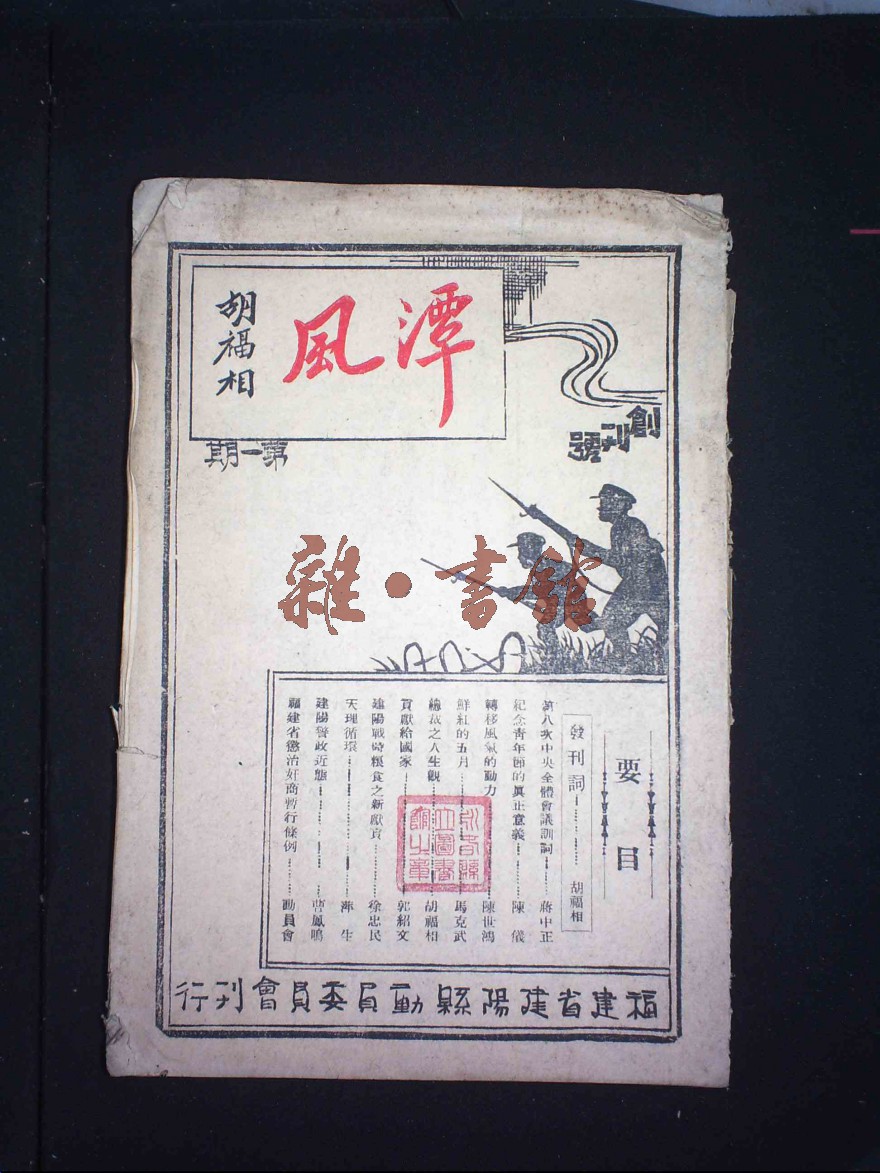 潭風
胡福相
創刊號
第一期
雜·書館
要目
發刊詞 胡福相
第八次中央全體會議訓詞 蔣中正
紀念青年節的眞正意義 陳儀
轉移風氣的動力 陳世鴻
鮮紅的五月 馬克武
總裁之人生觀 胡福相
貢獻給國家 郭紹文
建陽戰時糧食之新獻貢 徐忠民
天理循環 萍生
建陽警政近態 曹鳳鳴
福建省懲治奸商暫行條例 動員會
福建省建陽縣動員委員會刊行